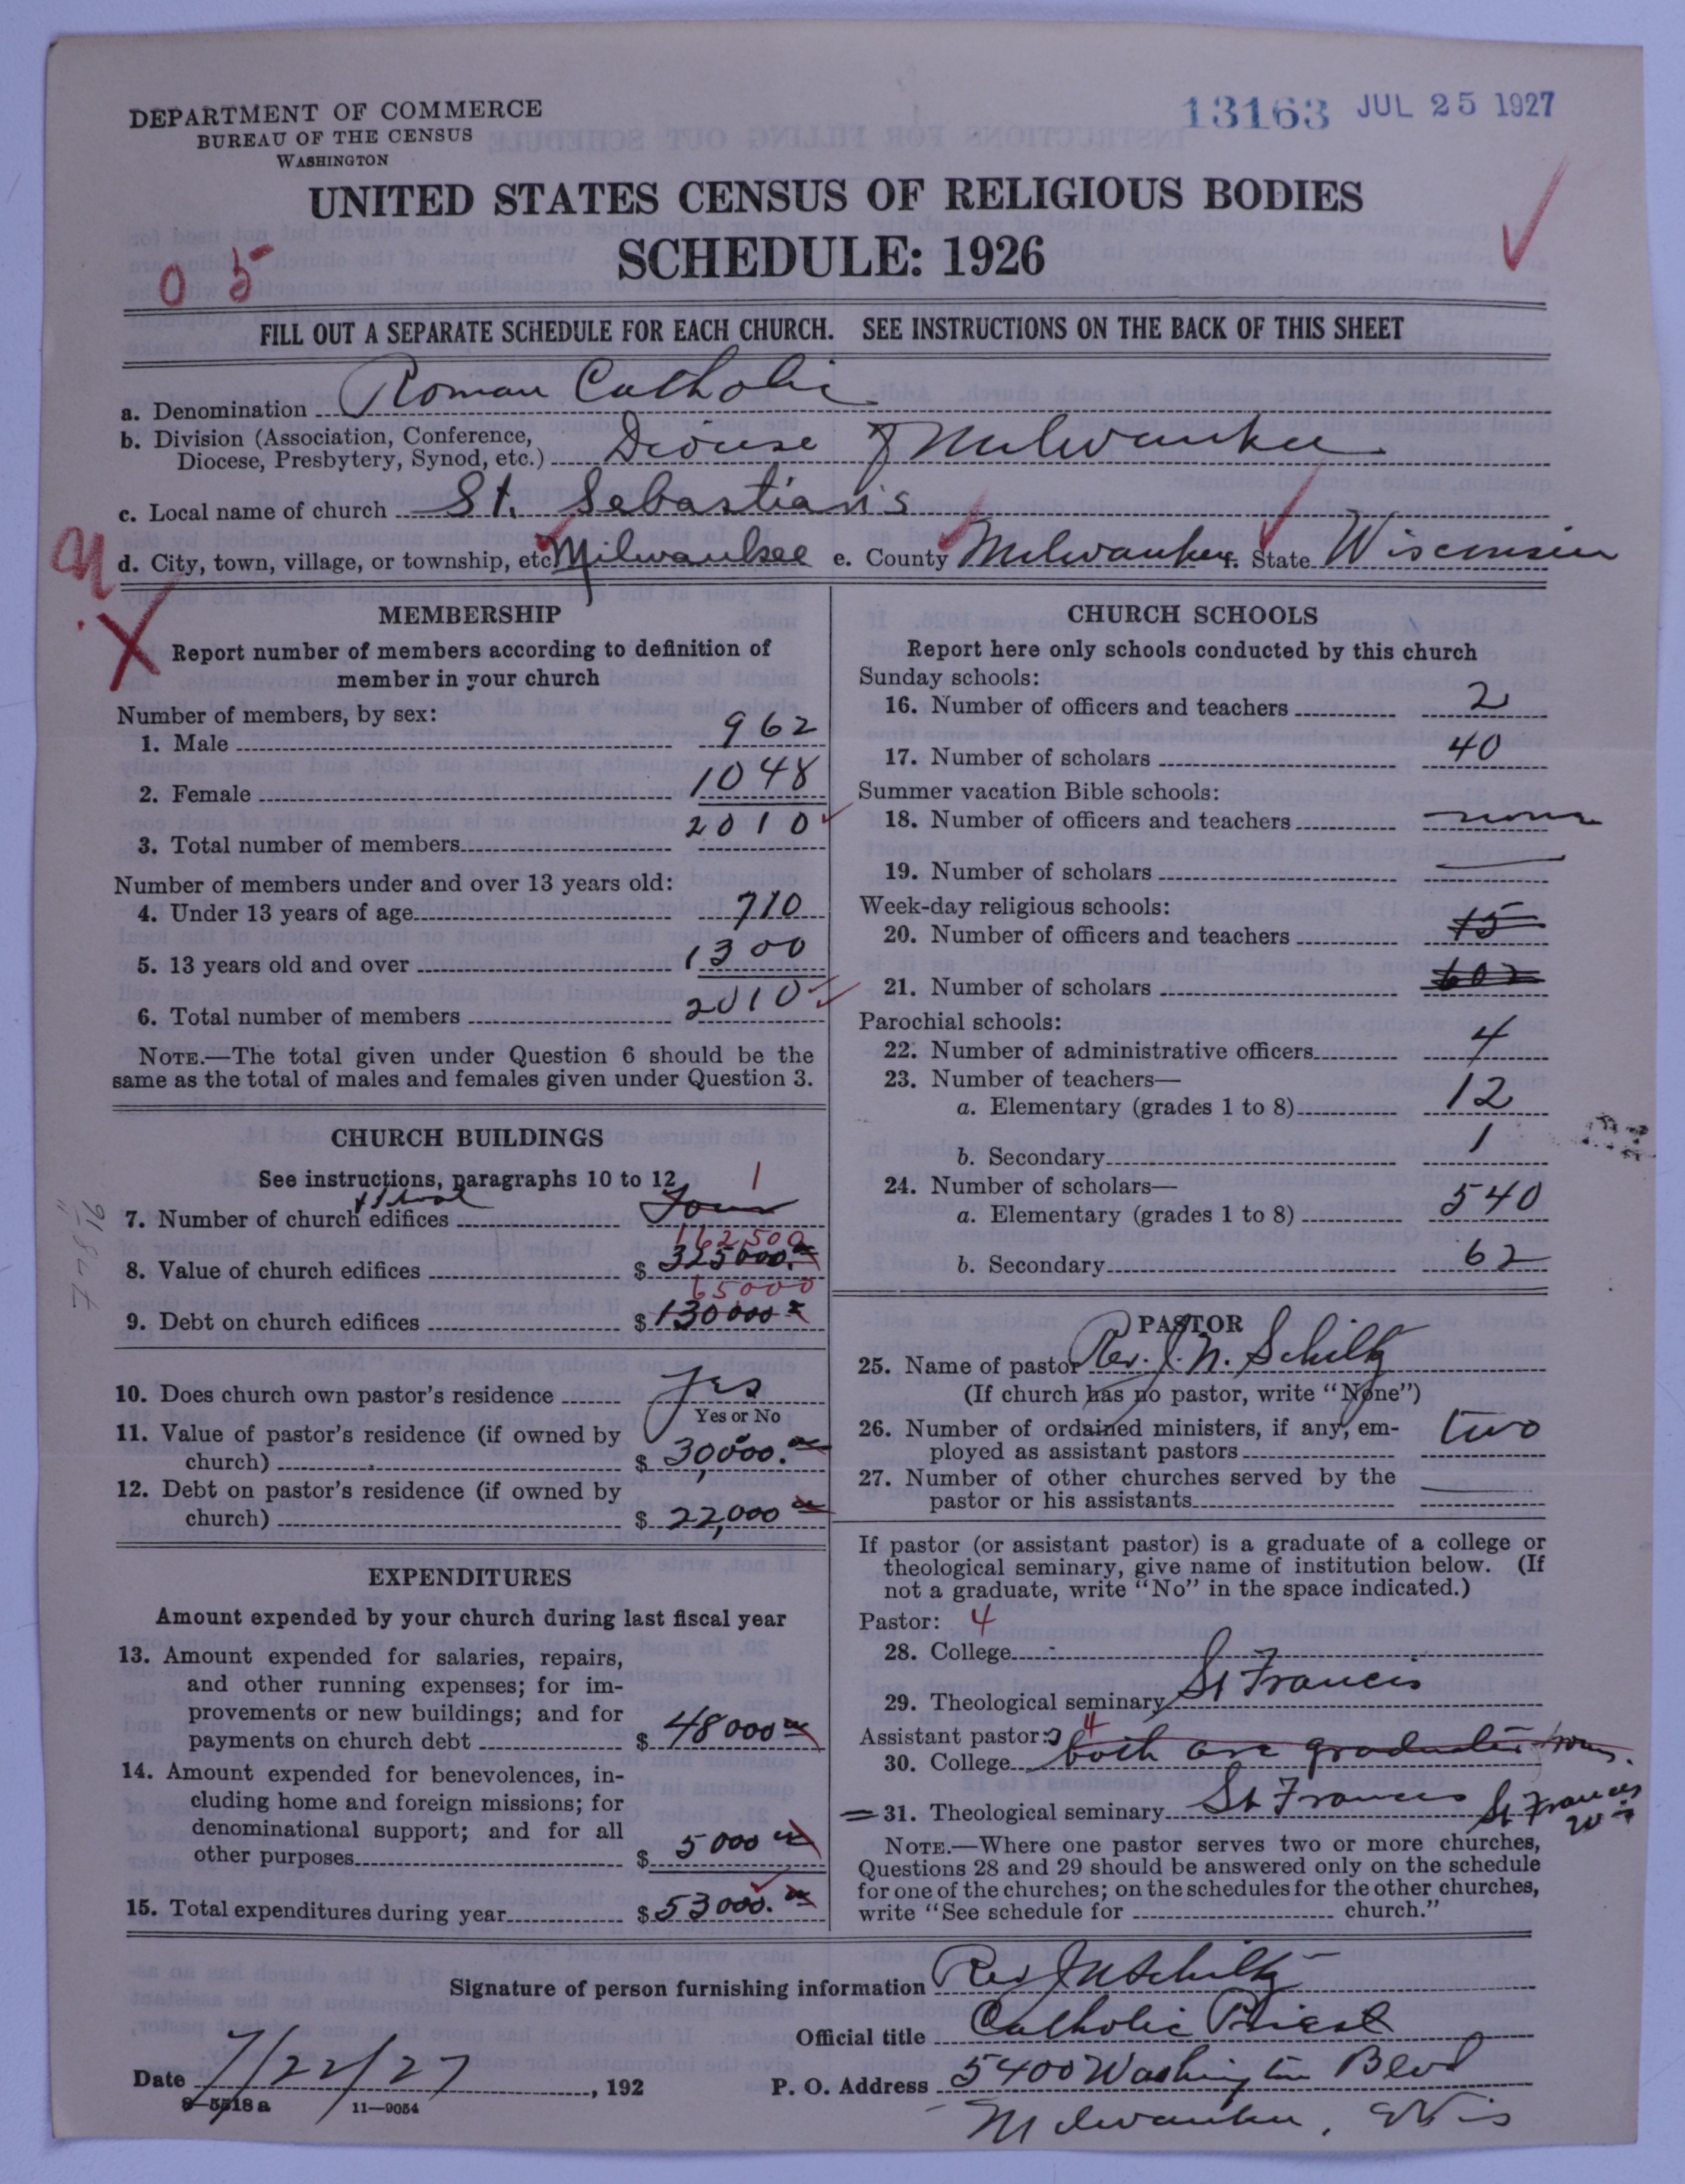 DEPARTMENT OF COMMERCE
BUREAU OF THE CENSUS
WASHINGTON
13163 JUL 25 1927
UNITED STATES CENSUS OF RELIGIOUS BODIES
SCHEDULE: 1926
05
FILL OUT A SEPARATE SCHEDULE FOR EACH CHURCH. SEE INSTRUCTIONS ON THE BACK OF THIS SHEET
a. Denomination Roman Catholic
b. Division (Association, Conference,
Diocese, Presbytery, Synod, etc.) Diocese of Milwaukee
c. Local name of church St. Sebastian's
d. City, town, village, or township, etc. Milwaukee e. County Milwaukee f. State Wisconsin
MEMBERSHIP
Report number of members according to definition of
member in your church
Number of members, by sex:
1. Male 962
2. Female 1048
3. Total number of members 2010
Number of members under and over 13 years old:
4. Under 13 years of age 710
5. 13 years old and over 1300
6. Total number of members 2010
NOTE.—The total given under Question 6 should be the
same as the total of males and females given under Question 3.
CHURCH BUILDINGS
See instructions, paragraphs 10 to 12
+ School
7. Number of church edifices four 1
162,500
8. Value of church edifices $ 325000.00
65000
9. Debt on church edifices $ 130000
10. Does church own pastor's residence Yes
Yes or No
11. Value of pastor's residence (if owned by
church) $ 30,000.00
12. Debt on pastor's residence (if owned by
church) $ 22,000 00
EXPENDITURES
Amount expended by your church during last fiscal year
13. Amount expended for salaries, repairs,
and other running expenses; for im-
provements or new buildings; and for
payments on church debt $ 48000 00
14. Amount expended for benevolences, in-
cluding home and foreign missions; for
denominational support; and for all
other purposes $ 5000 00
15. Total expenditures during year $ 53000.00
CHURCH SCHOOLS
Report here only schools conducted by this church
Sunday schools:
16. Number of officers and teachers 2
17. Number of scholars 40
Summer vacation Bible schools:
18. Number of officers and teachers none
19. Number of scholars —
Week-day religious schools:
20. Number of officers and teachers 15
21. Number of scholars 602
Parochial schools:
22. Number of administrative officers 4
23. Number of teachers—
a. Elementary (grades 1 to 8) 12
b. Secondary 1
24. Number of scholars—
a. Elementary (grades 1 to 8) 540
b. Secondary 62
PASTOR
25. Name of pastor Rev. J. N. Schiltz
(If church has no pastor, write "None")
26. Number of ordained ministers, if any, em-
ployed as assistant pastors two
27. Number of other churches served by the
pastor or his assistants —
If pastor (or assistant pastor) is a graduate of a college or
theological seminary, give name of institution below. (If
not a graduate, write "No" in the space indicated.)
Pastor: 4
28. College
29. Theological seminary St Francis
Assistant pastor: 4
30. College both are graduates from
31. Theological seminary St Francis St Francis
NOTE.—Where one pastor serves two or more churches,
Questions 28 and 29 should be answered only on the schedule
for one of the churches; on the schedules for the other churches,
write "See schedule for church."
Signature of person furnishing information Rev J N Schiltz
Official title Catholic Priest
Date 7/22/27, 192
P. O. Address 5400 Washington Blvd
Milwaukee, Wis
8—5518 a 11—9054